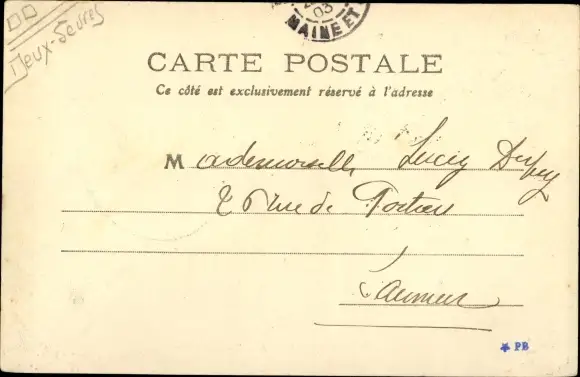 Deux-Sèvres
03
MAINE ET
CARTE POSTALE
Ce côté est exclusivement réservé à l'adresse
Mademoiselle Lucie
2 Rue de
Saumur
PB